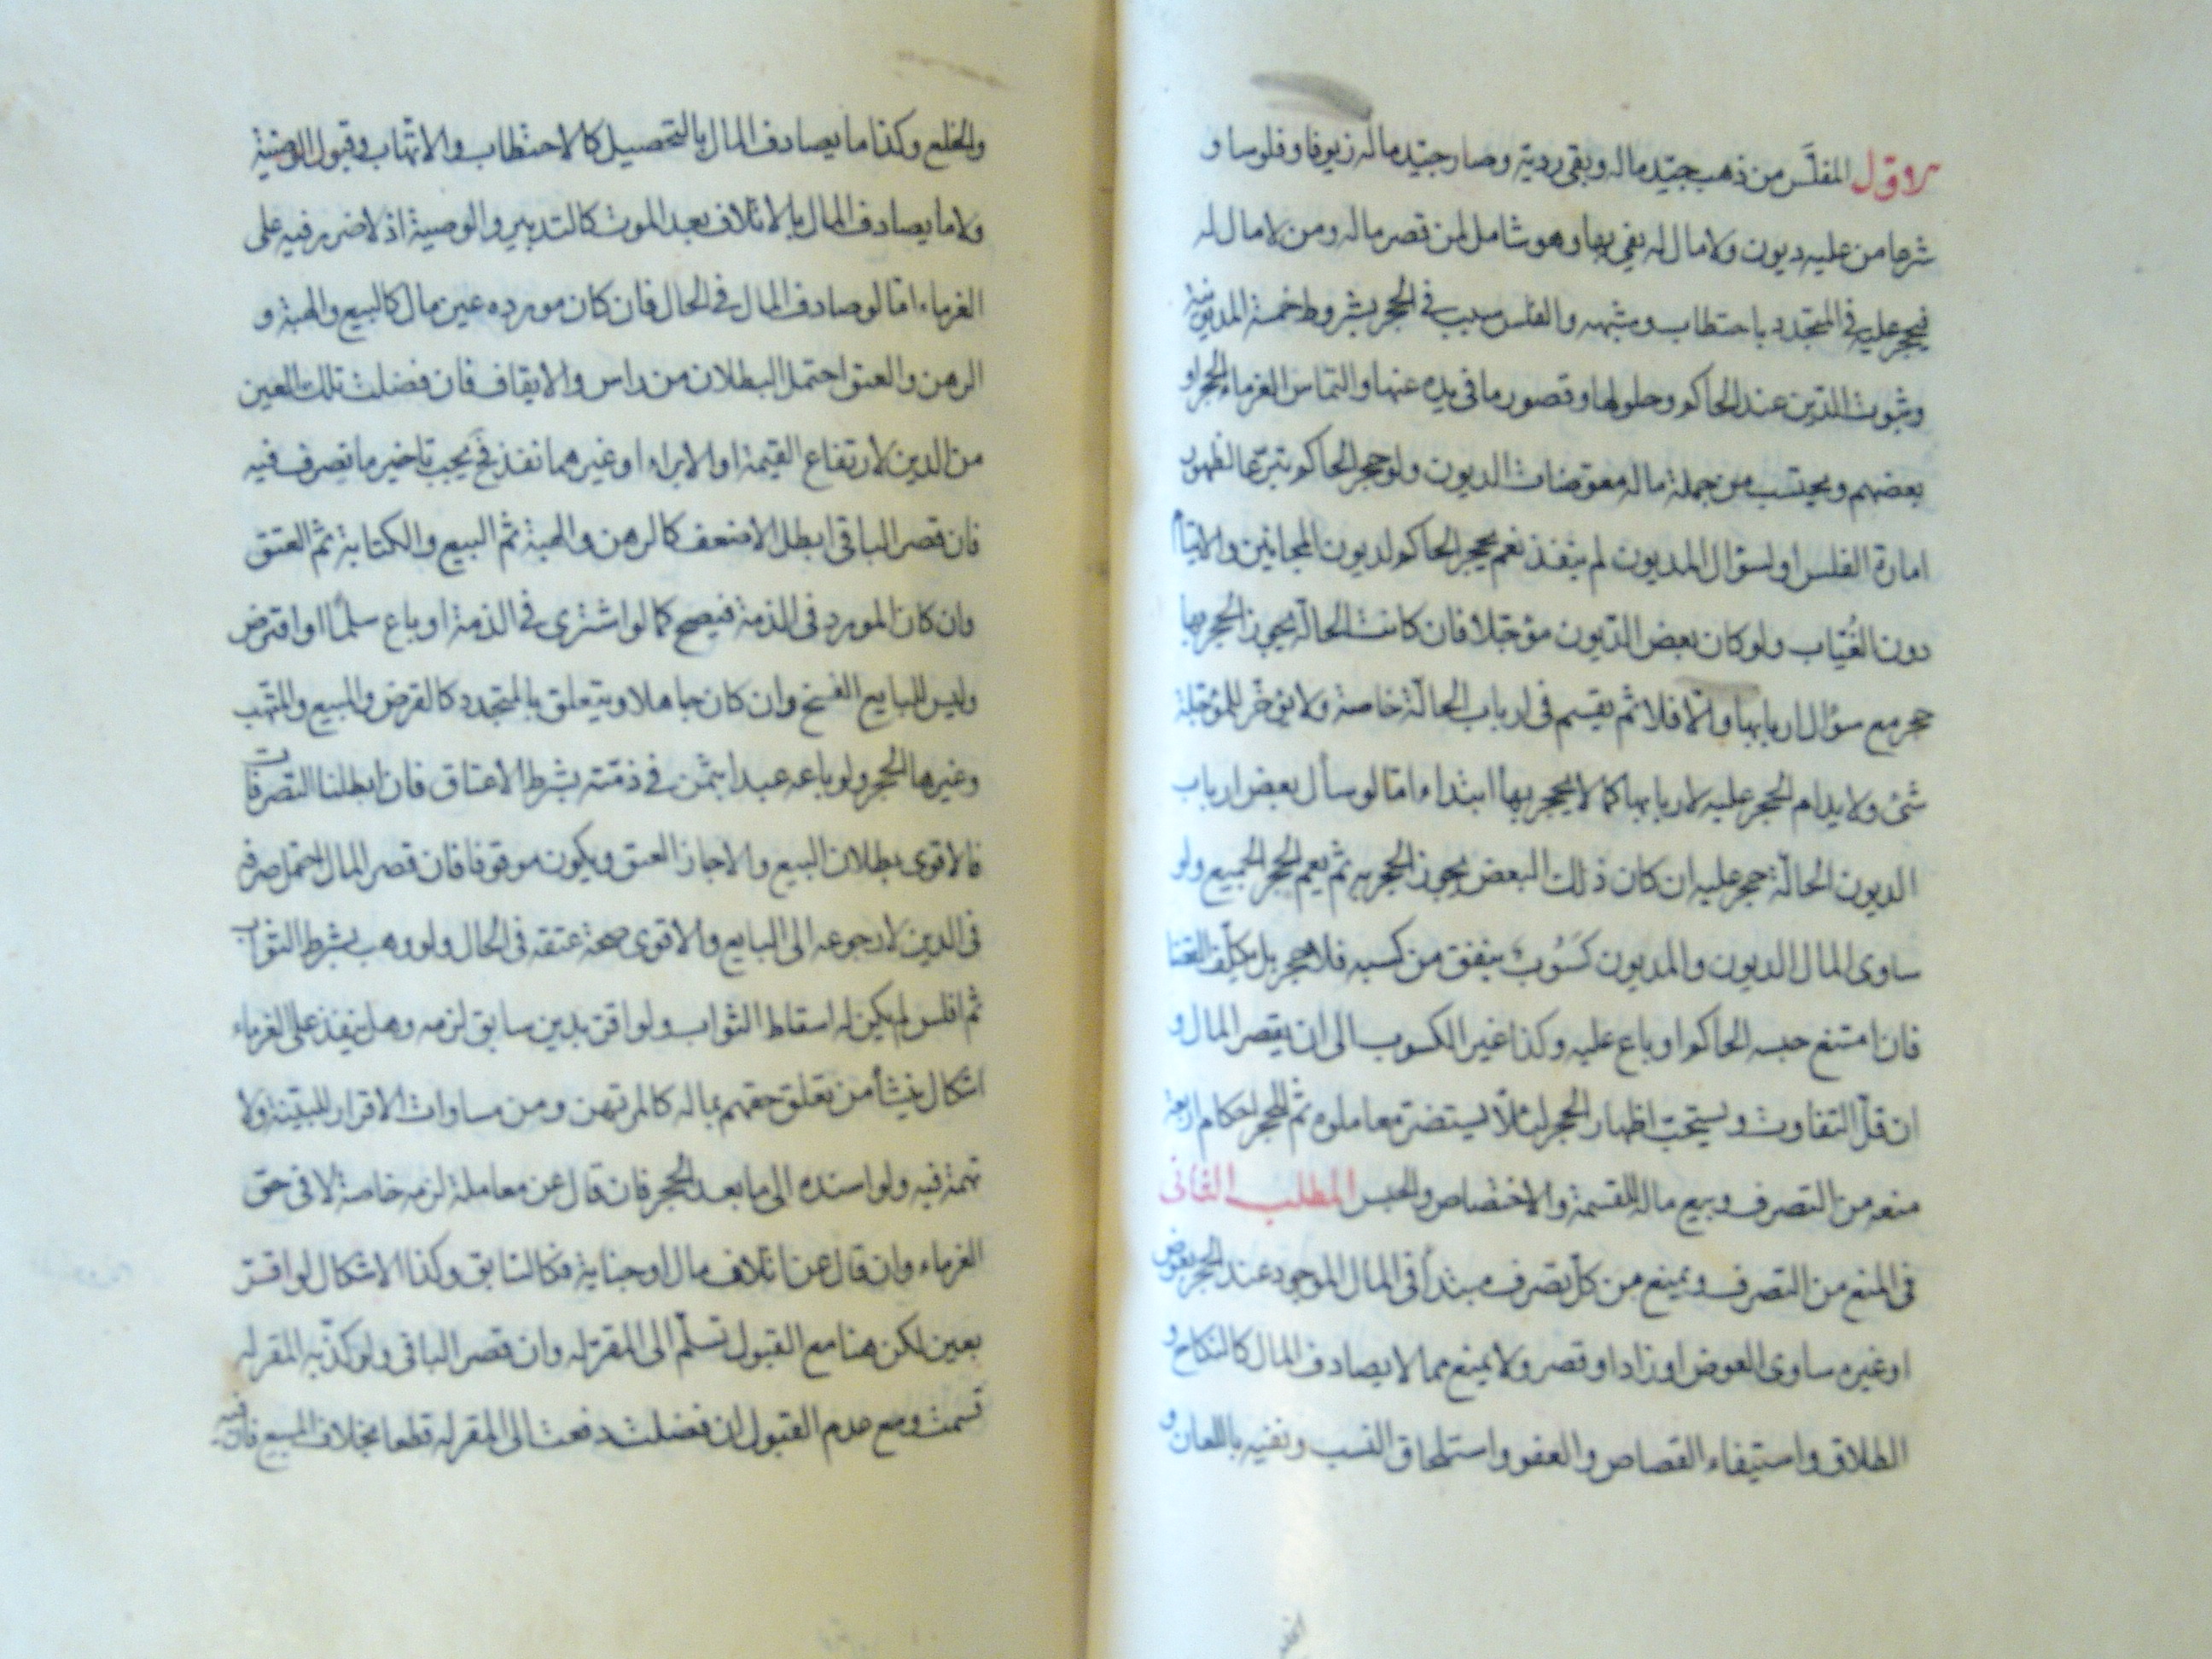 الاول المفلَّس من ذهب جيّد ماله وبقى رديّه وصار جيّد ماله زيوفا وفلوسا و
شرعا من عليه ديون ولا مال له يفى بها وهو شامل لمن قصر ماله ومن لا مال له
فيحجر عليه فى المتجدد باحتطاب وشبهه والفلس سبب فى الحجر بشروط خمسة المديونية
وثبوت الدّين عند الحاكم وحلولها وقصور ما فى يده عنها والتماس الغرماء الحجر او
بعضهم ويحتسب من جملة ماله معوضات الديون ولو حجر الحاكم تبرّعا لظهور
امارة الفلس او لسؤال المديون لم ينفذ نعم يحجر الحاكم لديون المجانين والايتام
دون الغُيّاب ولو كان بعض الدّيون مؤجّلا فان كانت الحالّة يجوز الحجر بها
حجر مع سؤال اربابها والّا فلا ثم يقسم فى ارباب الحالّة خاصة ولا يؤخّر للمؤجّلة
شئ ولا يدام الحجر عليه لاربابها كما لا يحجر بها ابتداء امّا لو سأل بعض ارباب
الديون الحالّة حجر عليه ان كان ذلك البعض يجوز الحجر به ثم يعم الحجر الجميع ولو
ساوى المال الديون والمديون كَسُوب ينفق من كسبه فلا حجر بل يكلّف القضا
فان امتنع حبسه الحاكم او باع عليه وكذا غير الكسوب الى ان يقصر المال و
ان قلّ التفاوت ويستحبّ اظهار الحجر لئلّا يستضرّ معاملوه ثم للحجر احكام اربعة
منعه من التصرف وبيع ماله للقسمة والاختصاص والحبس المطلب الثانى
فى المنع من التصرف ويمنع من كلّ تصرف مبتدأ فى المال الموجود عند الحجر بعوض
او غيره ساوى العوض او زاد او قصر ولا يمنع مما لا يصادف المال كالنكاح و
الطلاق واستيفاء القصاص والعفو واستلحاق النسب ونفيه باللعان و
والخلع وكذا ما يصادف المال بالتحصيل كالاحتطاب والاتهاب وقبول الوصية
ولا ما يصادف المال بالاتلاف بعد الموت كالتدبير والوصية اذ لا ضرر فيه على
الغرماء امّا لو صادف المال فى الحال فان كان مورده عين مال كالبيع والهبة و
الرهن والعتق احتمل البطلان من راس والايقاف فان فضلت تلك العين
من الدين لارتفاع القيمة او الابراء او غيرهما نفذ فح يجب تاخير ما تصرف فيه
فان قصر الباقى ابطل الاضعف كالرهن والهبة ثم البيع والكتابة ثم العتق
وان كان المورد فى الذمة فيصح كما لو اشترى فى الذمة او باع سلمًا او اقترض
وليس للبايع الفسخ وان كان جاهلا ويتعلق بالمتجدد كالقرض والمبيع والمتهب
وغيرها الحجر ولو باعه عبدا بثمن فى ذمّته بشرط الاعتاق فان ابطلنا التصرفات
فالاقوى بطلان البيع والا جاز العتق ويكون موقوفا فان قصر المال احتمل صرفه
فى الدين لا رجوعه الى البايع والاقوى صحة عتقه فى الحال ولو وهب بشرط الثواب
ثم افلس لم يكن له اسقاط الثواب ولو اقرّ بدين سابق لزمه وهل ينفذ على الغرماء
اشكال ينشأ من تعلق حقهم بماله كالمرتهن ومن مساوات الاقرار للبيّنة ولا
تهمة فيه ولو اسنده الى ما بعد الحجر فان قال عن معاملة لزمه خاصة لا فى حق
الغرماء وان قال عن اتلاف مال او جناية فكالسّابق وكذا الاشكال لو اقرّ
بعين لكن هنا مع القبول تسلّم الى المقرّ له وان قصر الباقى ولو كذّبه المقر له
قسمت ومع عدم القبول ان فضلت دفعت الى المقر له قطعا بخلاف البيع فان فيه